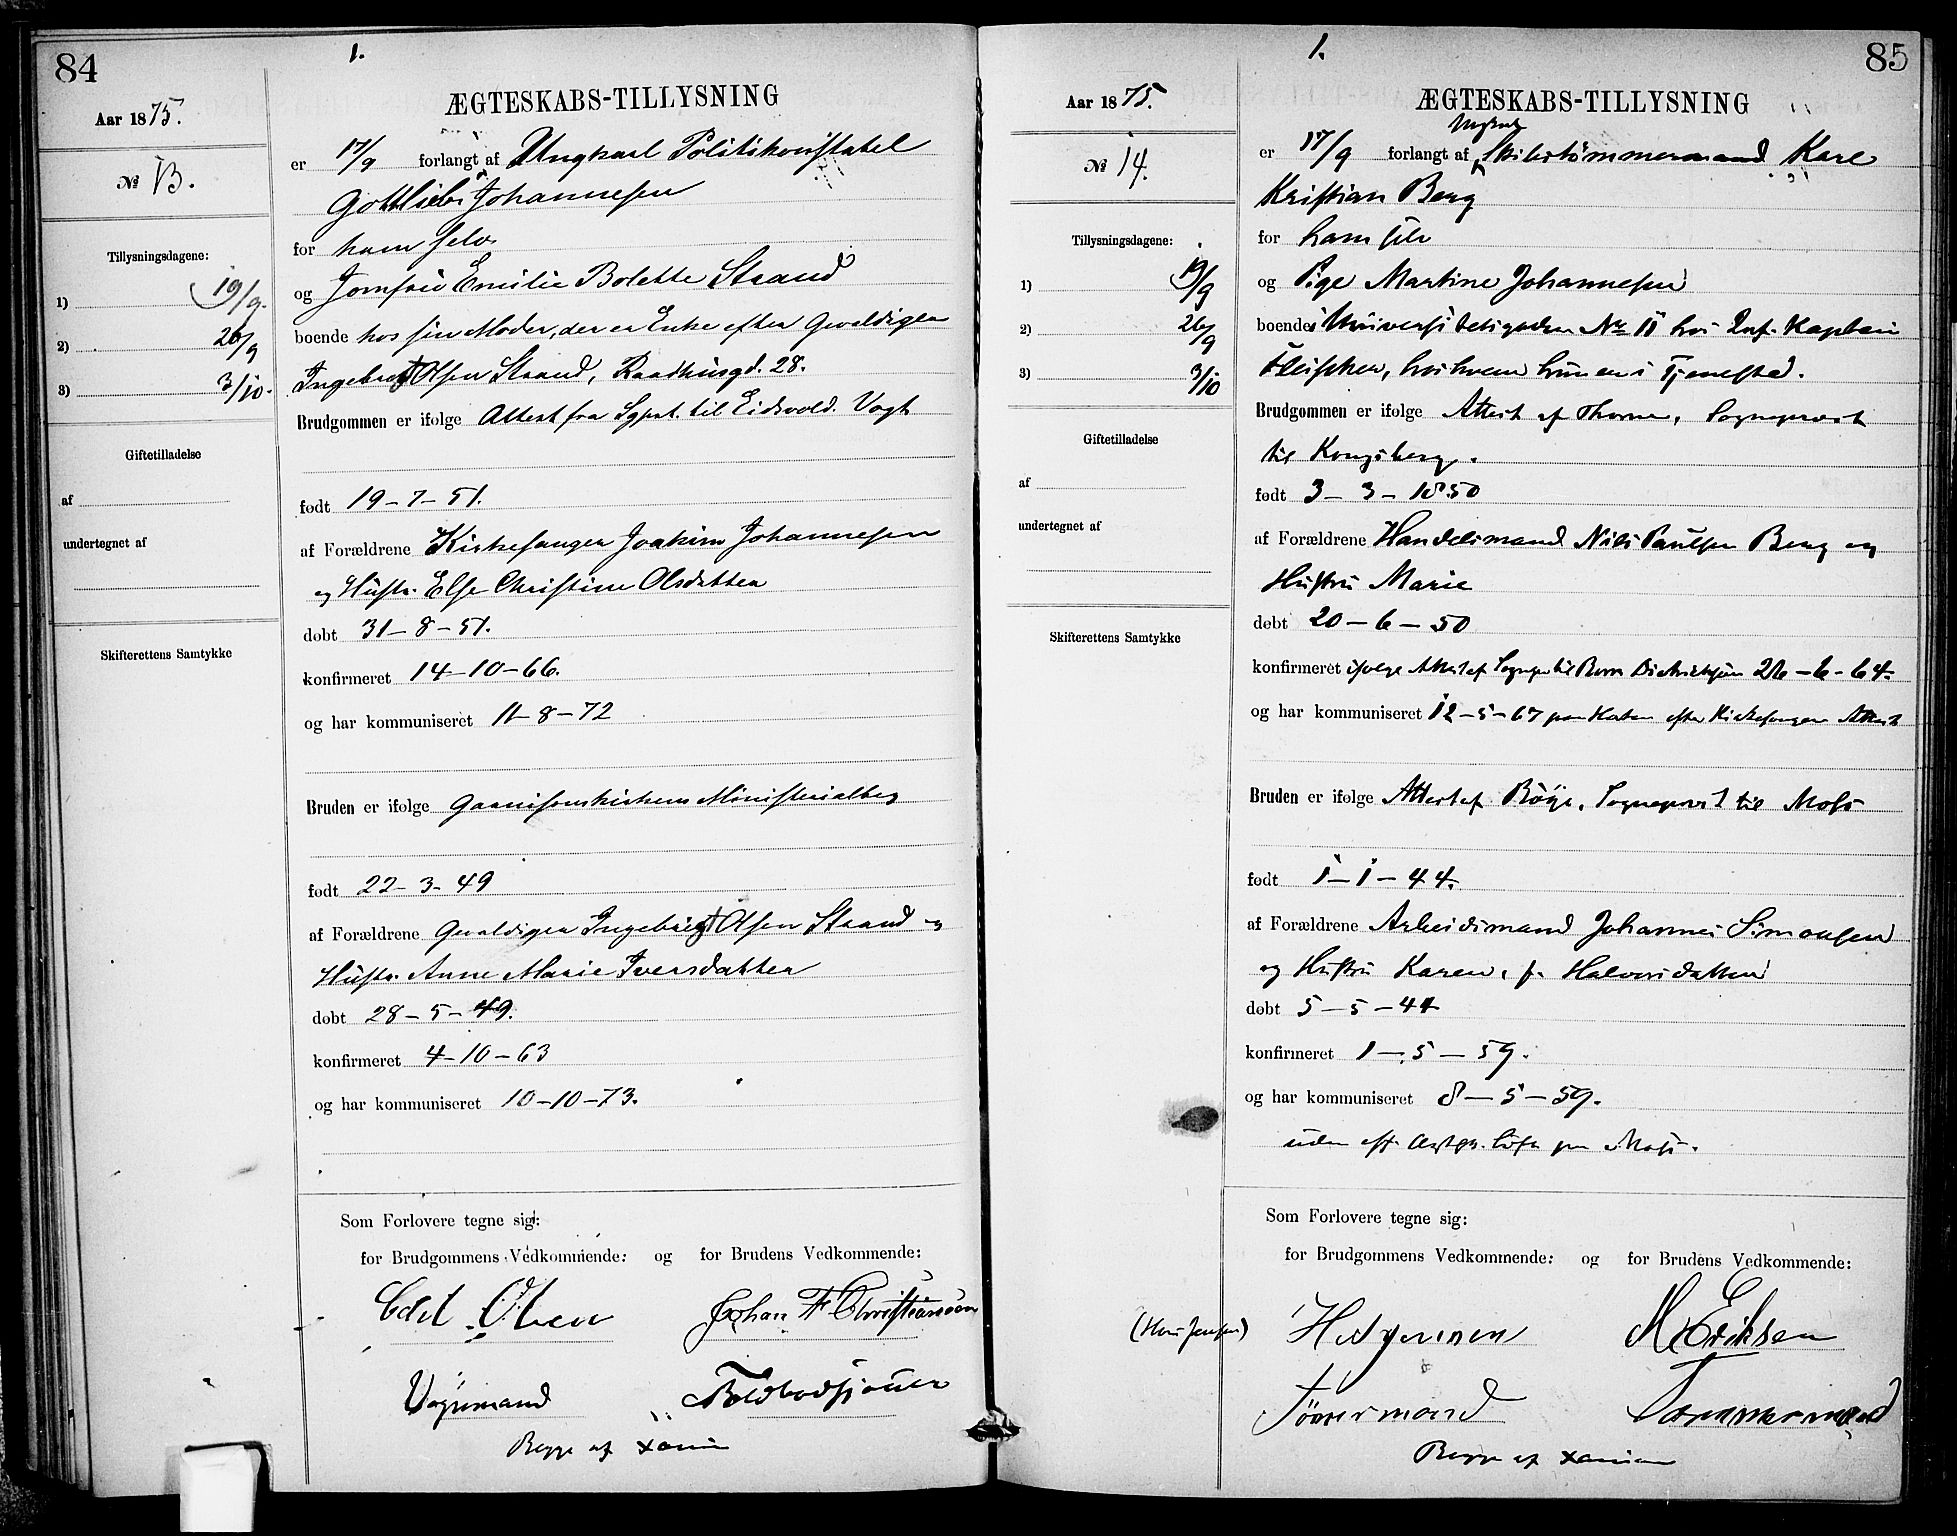 84
1.
Aar 1875.
ÆGTESKABS-TILLYSNING
№ 13.
er 17/9 forlangt af Ungkarl Politikonstabel
Gottlieb Johannesen
for ham selv
og Jomfru Emilie Bolette Strand
boende hos sin Moder, der er Enke efter Gevaldiger
Ingebregt Olsen Strand, Raadhusgd. 28.
Tillysningsdagene:
1) 19/9.
2) 26/9
3) 3/10.
Giftetilladelse
af
undertegnet af
Skifterettens Samtykke
Brudgommen er ifølge Attest fra Sgpst. til Eidsvold. Vogt
født 19-7-51.
af Forældrene Kirkesanger Joakim Johannesen
og Hustr. Else Christine Olsdatter
døbt 31-8-51.
konfirmeret 14-10-66.
og har kommuniseret 11-8-72
Bruden er ifølge Garnisonskirkens Ministerialbog
født 22-3-49
af Forældrene Gevaldiger Ingebregt Olsen Strand og
Hustr. Anne Marie Iversdatter
døbt 28-5-49.
konfirmeret 4-10-63
og har kommuniseret 10-10-73.
Som Forlovere tegne sig:
for Brudgommens Vedkommende: og for Brudens Vedkommende:
Olsen Johan F Christiansen
Begge af Xania
85
1.
Aar 1875.
ÆGTESKABS-TILLYSNING
№ 14.
Ungkarl
er 17/9 forlangt af Skibstømmermand Karl
Kristian Berg
for ham selv
og Pige Martine Johannesen
boende i Universitetsgaden No 11 hos Inf. Kaptein
Fleischer, hos hvem hun er i Tjeneste.
Tillysningsdagene:
1) 19/9
2) 26/9
3) 3/10
Giftetilladelse
af
undertegnet af
Skifterettens Samtykke
Brudgommen er ifølge Attest af Sogneprest
til Kongsberg.
født 3-3-1850
af Forældrene Handelsmand Nils Paulsen Berg og
Hustru Marie
døbt 20-6-50
konfirmeret ifølge Attest af Sognep. til 26-6-64.
og har kommuniseret 12-5-67 paa efter Kirkesangers Attest
Bruden er ifølge Attest af Sogneprest til Moss
født 1-1-44.
af Forældrene Arbeidsmand Johannes Simonsen
og Hustru Karen, f. Halvorsdatter
døbt 5-5-44
konfirmeret 1-5-59.
og har kommuniseret 8-5-59.
uden eft. paa Moss.
Som Forlovere tegne sig:
for Brudgommens Vedkommende: og for Brudens Vedkommende:
M Eriksen
Tømmermand Tømmermand
Begge af Xania